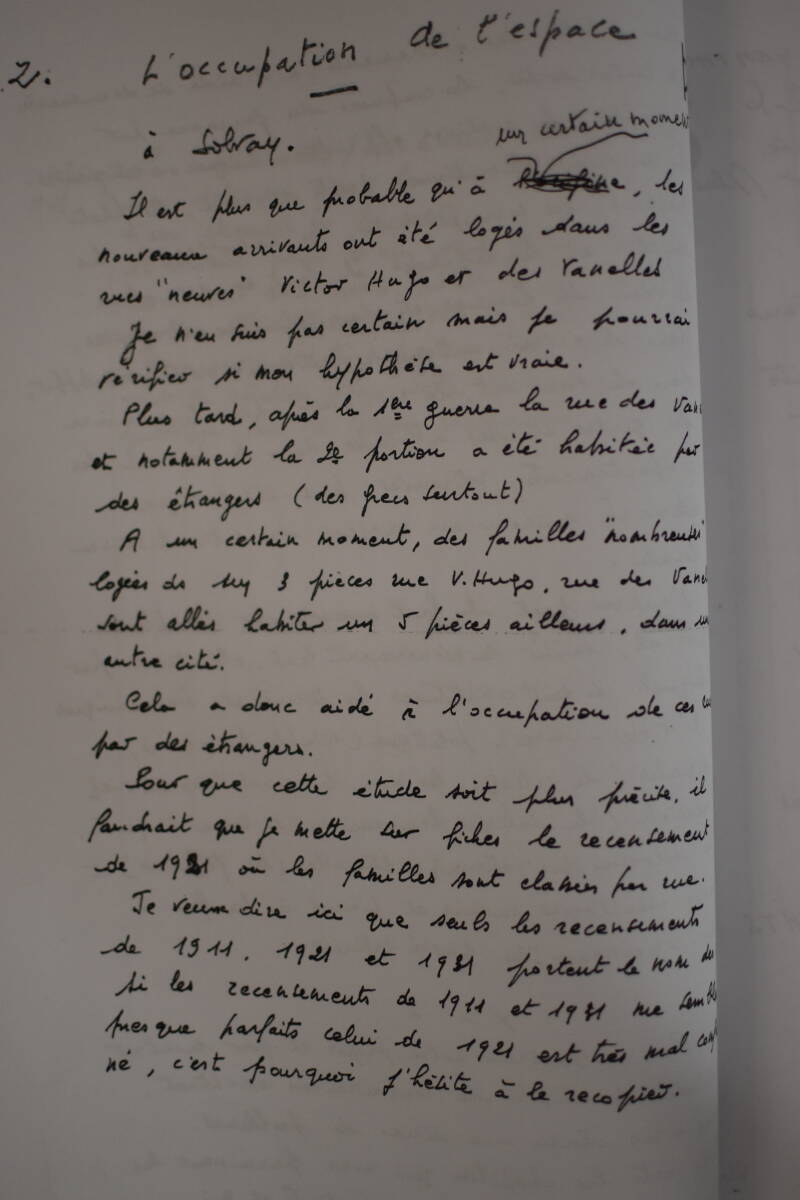 2. L'occupation de l'espace
à Solvay.
un certain momen
Il est plus que probable qu'à , les
nouveaux arrivants ont été logés dans les
rues "neuves" Victor Hugo et des Vanelles
Je n'en suis pas certain mais je pourrai
vérifier si mon hypothèse est vraie.
Plus tard, après la 1ère guerre la rue des Van
et notamment la 2e portion a été habitée par
des étrangers (des grecs surtout)
A un certain moment, des familles "nombreuses"
logées ds un 3 pièces rue V. Hugo, rue des Vane
sont allés habiter un 5 pièces ailleurs, dans u
autre cité.
Cela a donc aidé à l'occupation de ces
par des étrangers.
Pour que cette étude soit plus précise, il
faudrait que je mette sur fiches le recensement
de 1921 où les familles sont classées par rue.
Je veux dire ici que seuls les recensements
de 1911. 1921 et 1931 portent le nom des
si les recensements de 1911 et 1931 me semble
presque parfaits celui de 1921 est très mal
né, c'est pourquoi j'hésite à le recopier.